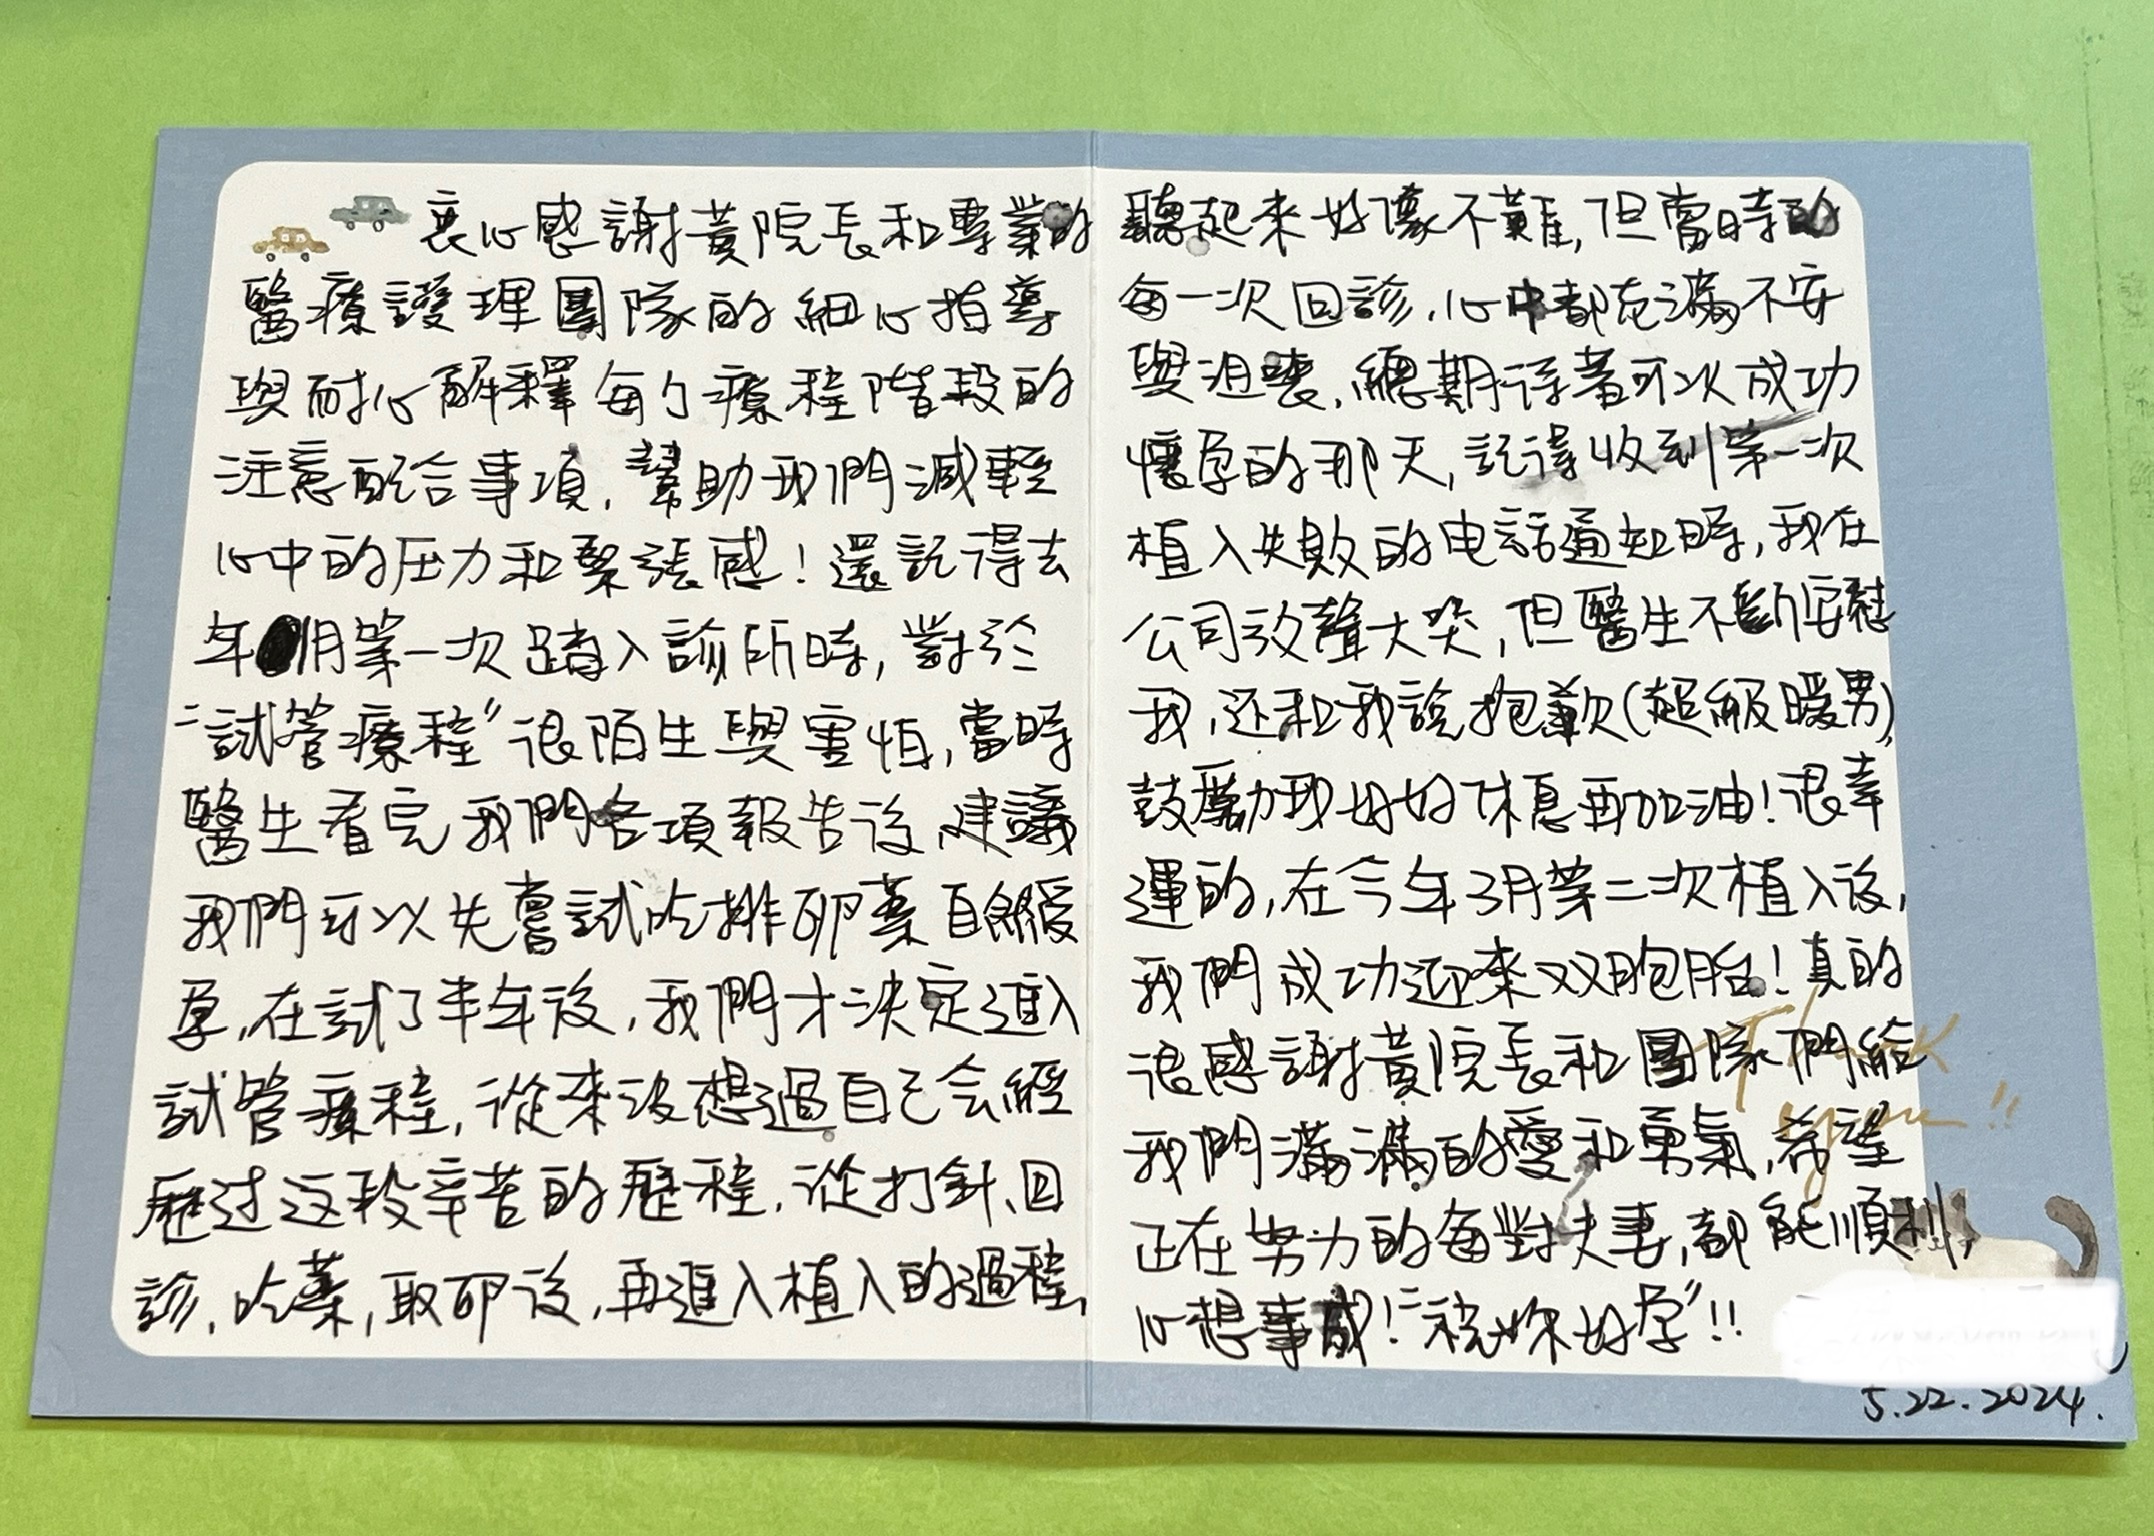 衷心感謝黃院長和專業的
醫療護理團隊的細心指導
與耐心解釋每个療程階段的
注意配合事項,幫助我們減輕
心中的压力和緊張感!還記得去
年1月第一次踏入診所時,對於
"試管療程"很陌生與害怕,當時
醫生看完我們各項報告後,建議
我們可以先嘗試吃排卵藥自然受
孕,在試了半年後,我們才決定進入
試管療程,從來沒想過自己会經
歷过这段辛苦的歷程,從打針、回
診、吃藥,取卵後,再進入植入的過程,
聽起來好像不難,但當時的
每一次回診,心中都充滿不安
與沮喪,總期待著可以成功
懷孕的那天,記得收到第一次
植入失敗的电話通知時,我在
公司放聲大哭,但醫生不斷安慰
我,还和我說抱歉(超級暖男),
鼓勵我好好休息再加油!很幸
運的,在今年3月第二次植入後,
我們成功迎來双胞胎!真的
很感謝黃院長和團隊們給
我們滿滿的愛和勇氣,希望
正在努力的每對夫妻,都能順利,
心想事成!"祝妳好孕"!!
Thank
you!!
5.22.2024.